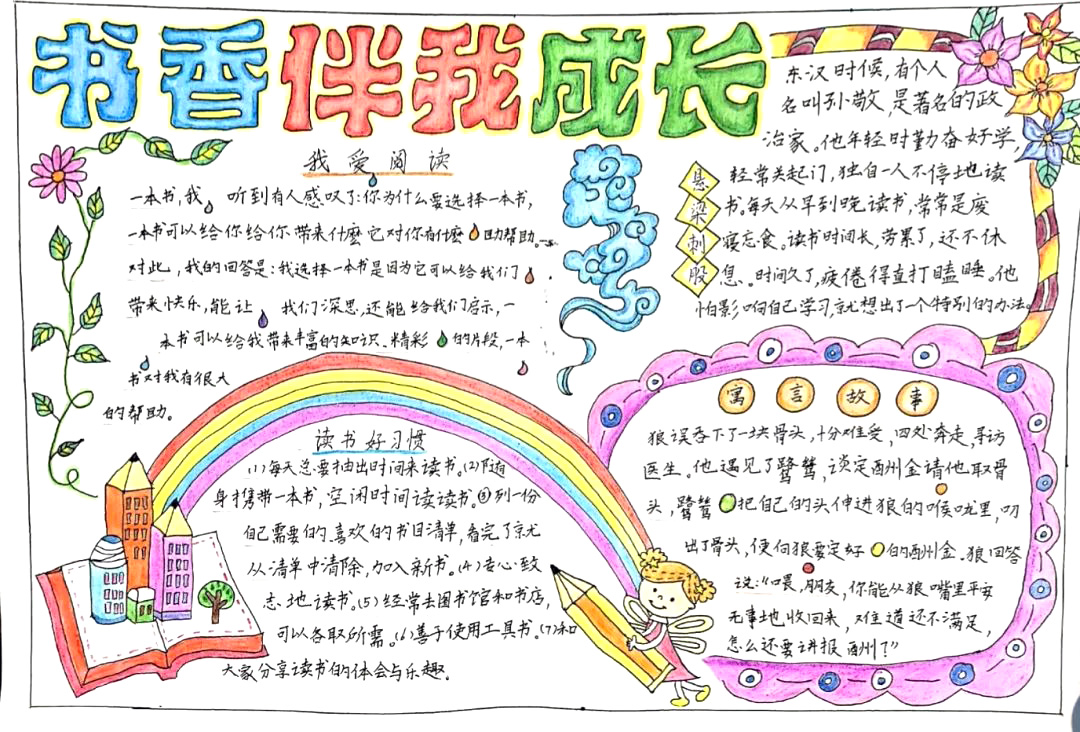 书香伴我成长
我爱阅读
一本书,我 听到有人感叹了:你为什么要选择一本书,
一本书可以给你给你带来什麼它对你有什麼 田助帮助。
对此,我的回答是:我选择一本书是因为它可以给我们
带来快乐,能让 我们深思,还能给我们启示,一
本书可以给我带来丰富的知识、精彩 的片段,一本
书对我有很大
的帮助。
悬梁刺股
东汉时候,有个人
名叫孙敬,是著名的政
治家。他年轻时勤奋好学,
经常关起门,独自一人不停地读
书。每天从早到晚读书,常常是废
寝忘食。读书时间长,劳累了,还不休
息。时间久了,疲倦得直打瞌睡。他
怕影响自己学习,就想出了一个特别的办法。
读书好习惯
(1)每天总要抽出时间来读书。(2)随
身携带一本书,空闲时间读读书。③列一份
自己需要的、喜欢的书目清单,看完了就
从清单中清除,加入新书。(4)专心致
志地读书。(5)经常去图书馆和书店,
可以各取所需。(6)善于使用工具书。(7)和
大家分享读书的体会与乐趣。
寓言故事
狼误吞下了一块骨头,十分难受,四处奔走,寻访
医生。他遇见了鹭鸶,谈定酬金请他取骨
头,鹭鸶 把自己的头伸进狼的喉咙里,叼
出了骨头,便向狼要定好 的酬金。狼回答
说:“喂,朋友,你能从狼嘴里平安
无事地收回来,难道还不满足,
怎么还要讲报酬?”